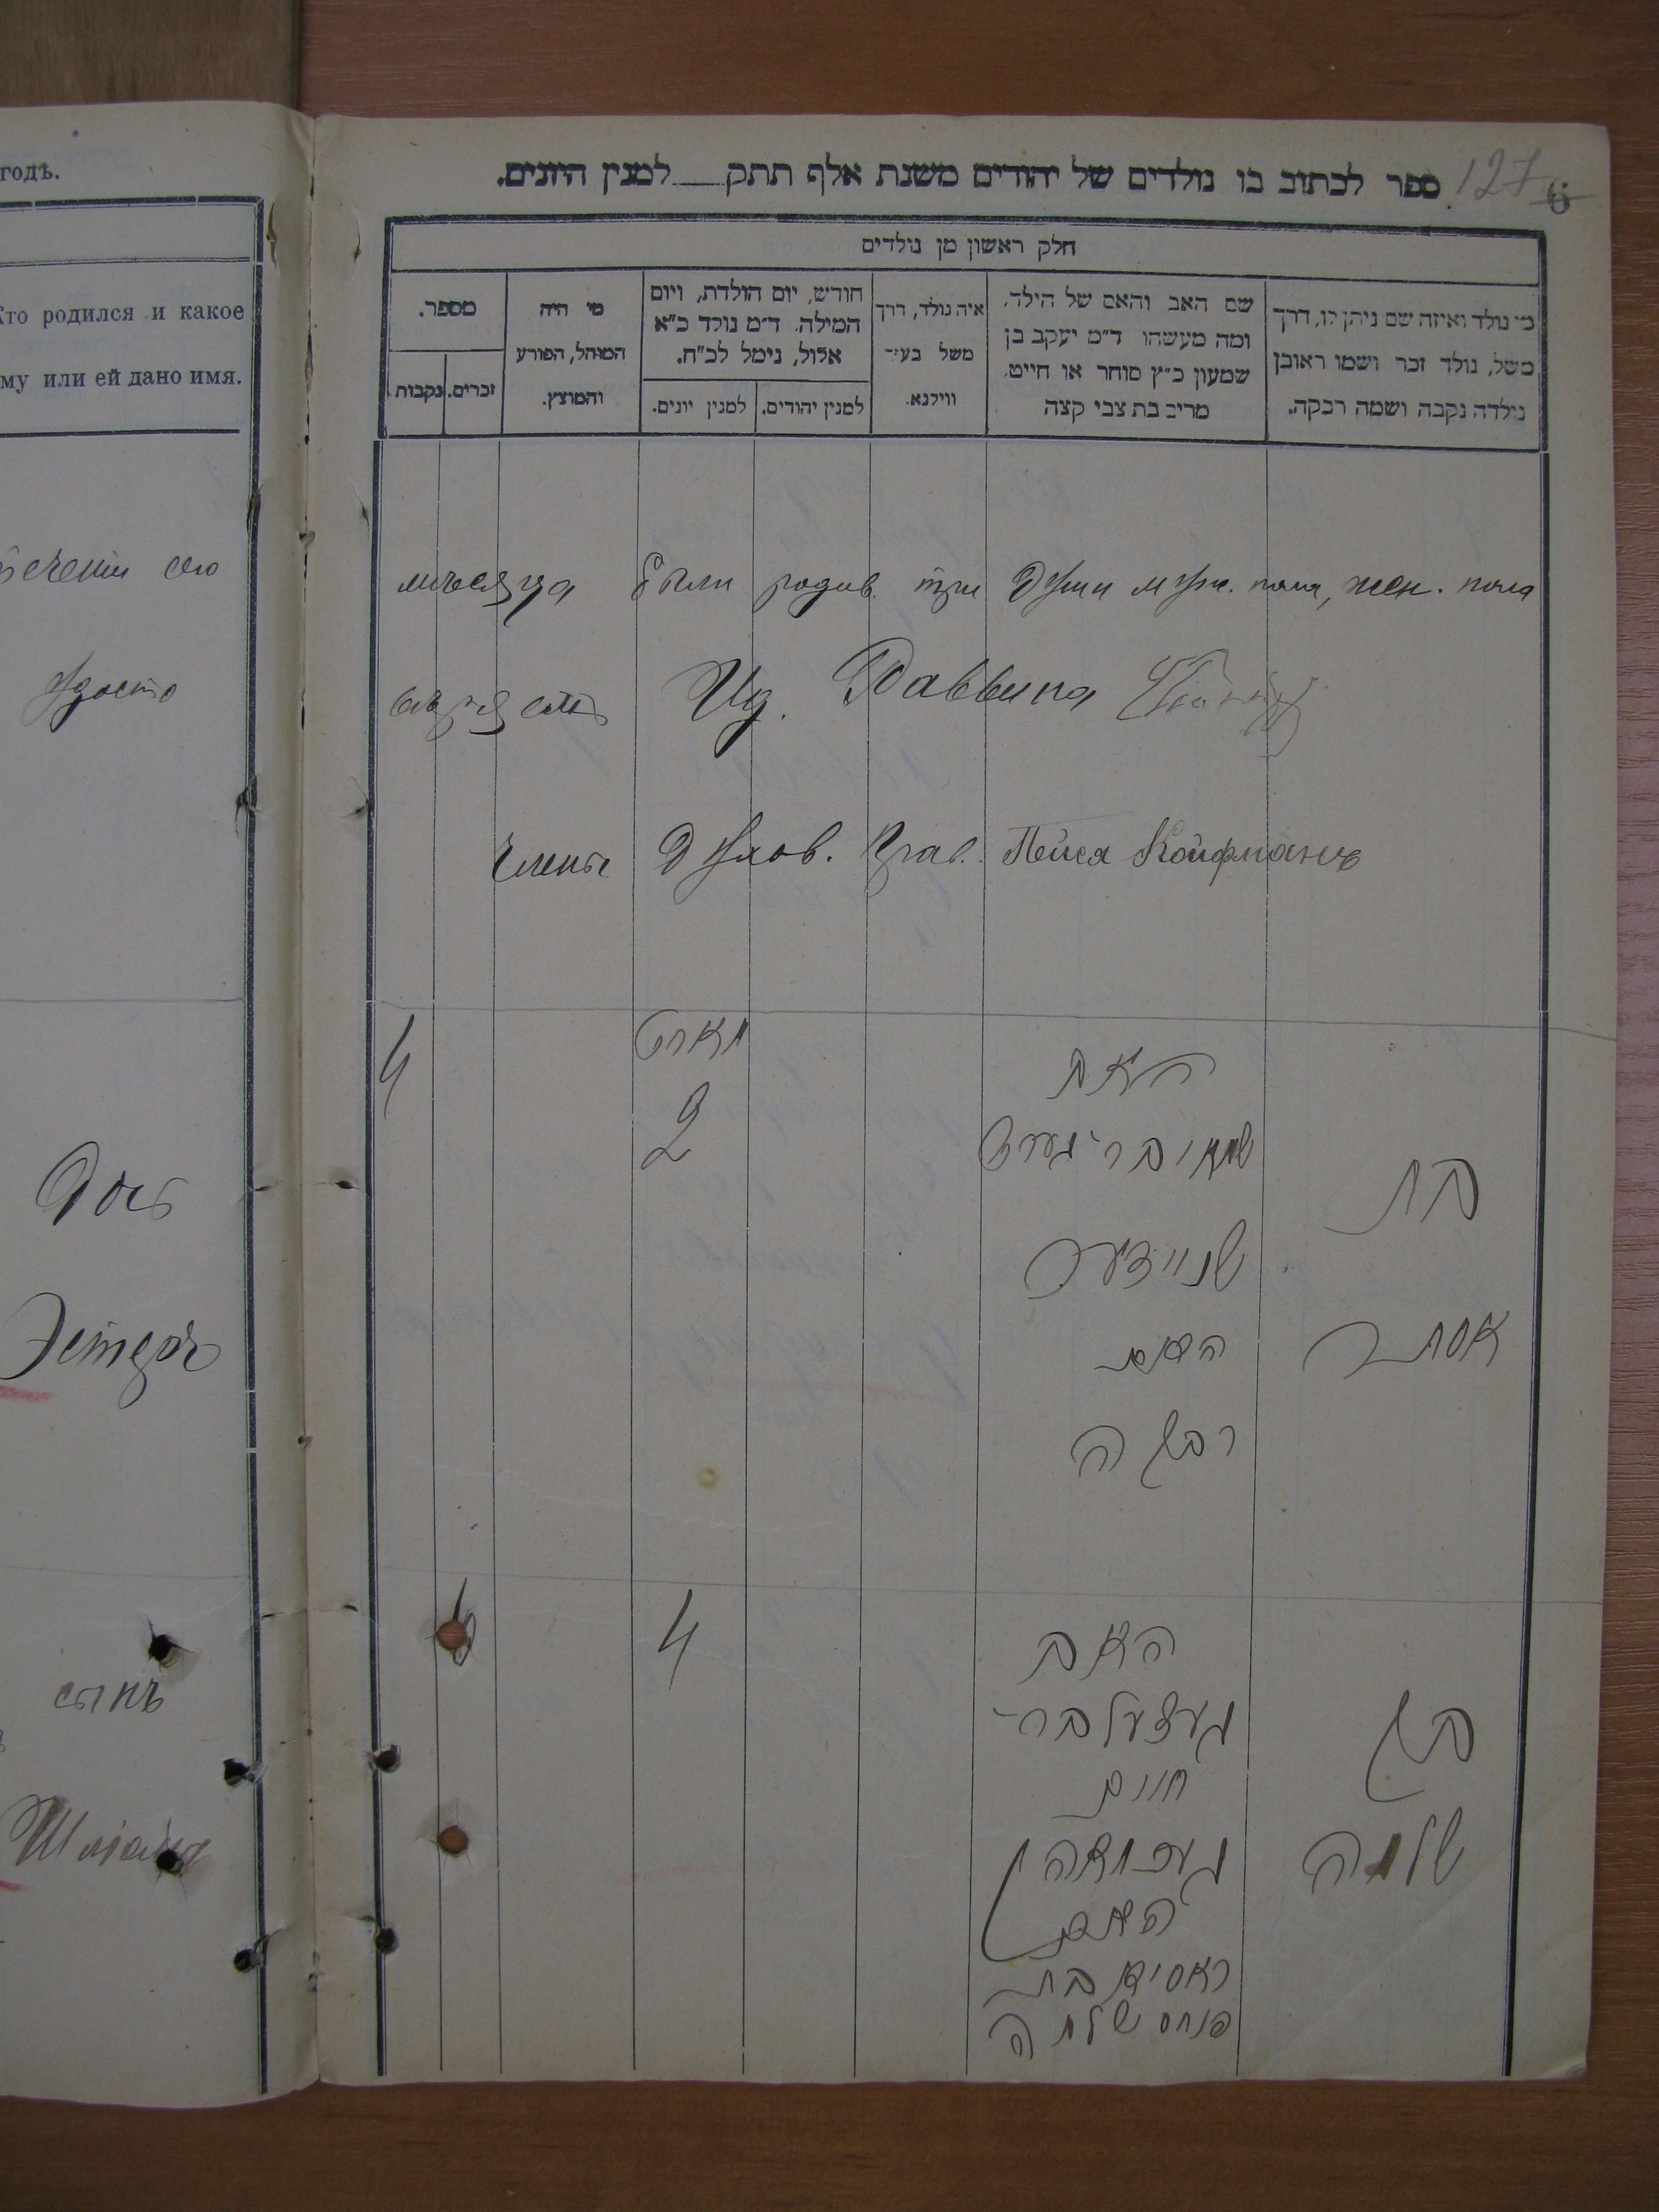 годѣ.
Кто родился и какое
ему или ей дано имя.
сего
Дочь
Эстеръ
сынъ
ספר לכתוב בו נולדים של יהודים משנת אלף תתק למנין היונים.
127
6
חלק ראשון מן נולדים
מי נולד ואיזה שם ניתן לו, דרך
משל, נולד זכר ושמו ראובן
נולדה נקבה ושמה רבקה.
שם האב והאם של הילד,
ומה מעשהו ד״מ יעקב בן
שמעון כ״ץ סוחר או חייט,
מרים בת צבי קצה
איה נולד, דרך
משל בעיר
ווילנא.
חודש, יום הולדת, ויום
המילה. ד״מ נולד כ״א
אלול, נימל לכ״ח.
למנין יהודים.
למנין יונים.
מי היה
המוהל, הפורע
והמוצץ.
מספר.
זכרים.
נקבות
мѣсяца были родив. три души муж. пола, жен. пола
Ид. Раввина
Члены Духов. Прав. Пейся Койфманъ
בת
אסתר
האב
שנויידער
האם
רבקה
מארט
2
4
בן
שלמה
האב
געצעל בר׳
חיים
האם
ראסיא בת
פנחס שלמה
4